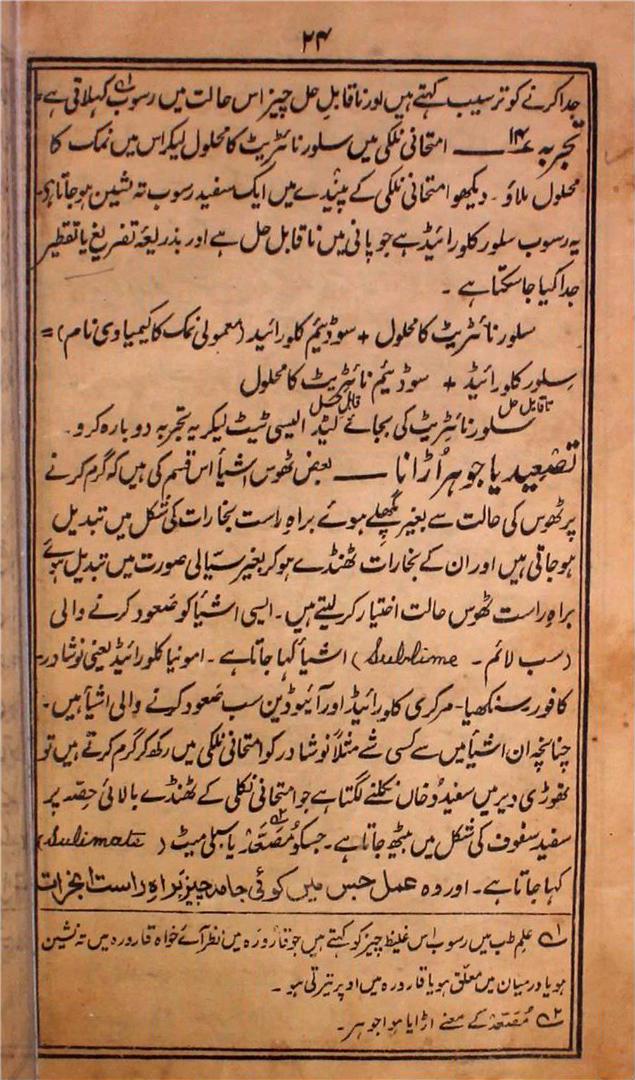 ۲۴
جدا کرنے کو ترسیب کہتے ہیں اور ناقابل حل چیز اس حالت میں رسوب۱؎ کہلاتی ہے۔
تجربہ ۱۴؎ ــــــ امتحانی نلکی میں سلور نائٹریٹ کا محلول لیکر اس میں نمک کا
محلول ملاؤ۔ دیکھو امتحانی نلکی کے پیندے میں ایک سفید رسوب تہ نشین ہو جاتا ہے۔
یہ رسوب سلور کلورائیڈ ہے جو پانی میں ناقابل حل ہے اور بذریعہ تفریغ یا تقطیر
جدا کیا جا سکتا ہے۔
سلور نائٹریٹ کا محلول + سوڈیم کلورائیڈ (معمولی نمک کا کیمیاوی نام) =
سلور کلورائیڈ + سوڈیم نائٹریٹ کا محلول
ناقابل حل قابل حل
سلور نائٹریٹ کی بجائے لیڈ ایسی ٹیٹ لیکر یہ تجربہ دوبارہ کرو۔
تصعید یا جوہر اُڑانا ــــــ بعض ٹھوس اشیأ اس قسم کی ہیں کہ گرم کرنے
پر ٹھوس کی حالت سے بغیر پگھلے ہوئے براہِ راست بخارات کی شکل میں تبدیل
ہو جاتی ہیں اور ان کے بخارات ٹھنڈے ہو کر بغیر سیّالی صورت میں تبدیل ہوئے
براہِ راست ٹھوس حالت اختیار کر لیتے ہیں۔ ایسی اشیأ کو صَعود کرنے والی
(سب لائم۔ Sublime) اشیأ کہا جاتا ہے۔ امونیا کلورائیڈ یعنی نوشادر۔
کافور۔ سنکھیا۔ مرکری کلورائیڈ اور آئیوڈین سب صَعود کرنے والی اشیأ ہیں۔
چنانچہ ان اشیأ میں سے کسی شے مثلاً نوشادر کو امتحانی نلکی میں رکھ کر گرم کرتے ہیں تو
تھوڑی دیر میں سفید دُخان نکلنے لگتا ہے جو امتحانی نلکی کے ٹھنڈے بالائی حصّہ پر
سفید سفوف کی شکل میں بیٹھ جاتا ہے۔ جسکو مُصَعّد۲؎ یا سبلی میٹ (Sulimate)
کہا جاتا ہے۔ اور وہ عمل جس میں کوئی جامد چیز براہِ راست ابخرات
۱؎ علم طب میں رسوب اس غلیظ چیز کو کہتے ہیں جو قارورہ میں نظر آئے خواہ قارورہ میں تہ نشین
ہو یا درمیان میں معلّق ہو یا قارورہ میں اوپر تیرتی ہو۔
۲؎ مُصَعّد کے معنے اڑایا ہوا جوہر۔